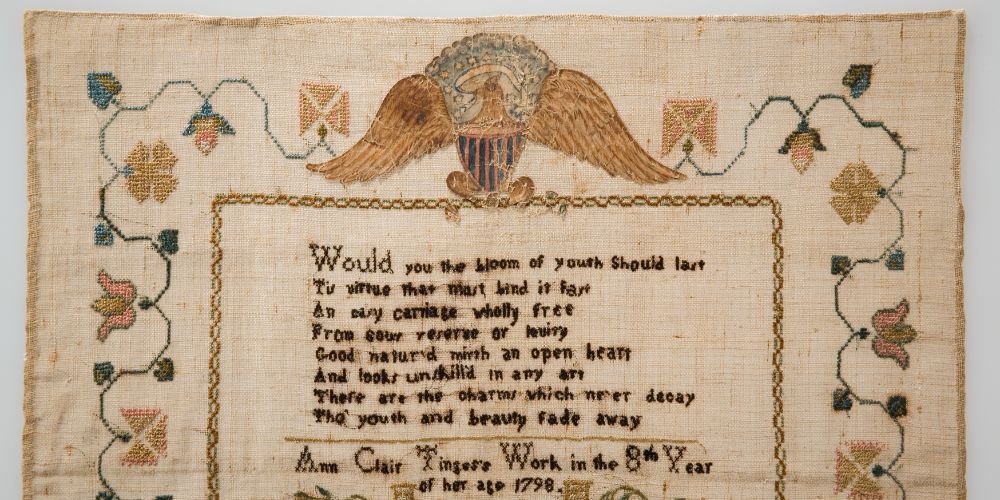 Would you the bloom of youth Should last
Tis virtue that must bind it fast
An easy carriage wholly free
From sour reserve or levity
Good natur'd mirth an open heart
And looks unskill'd in any art
These are the charms which ne'er decay
Tho' youth and beauty fade away
Ann Clair Tingers Work in the 8th Year
of her age 1798.